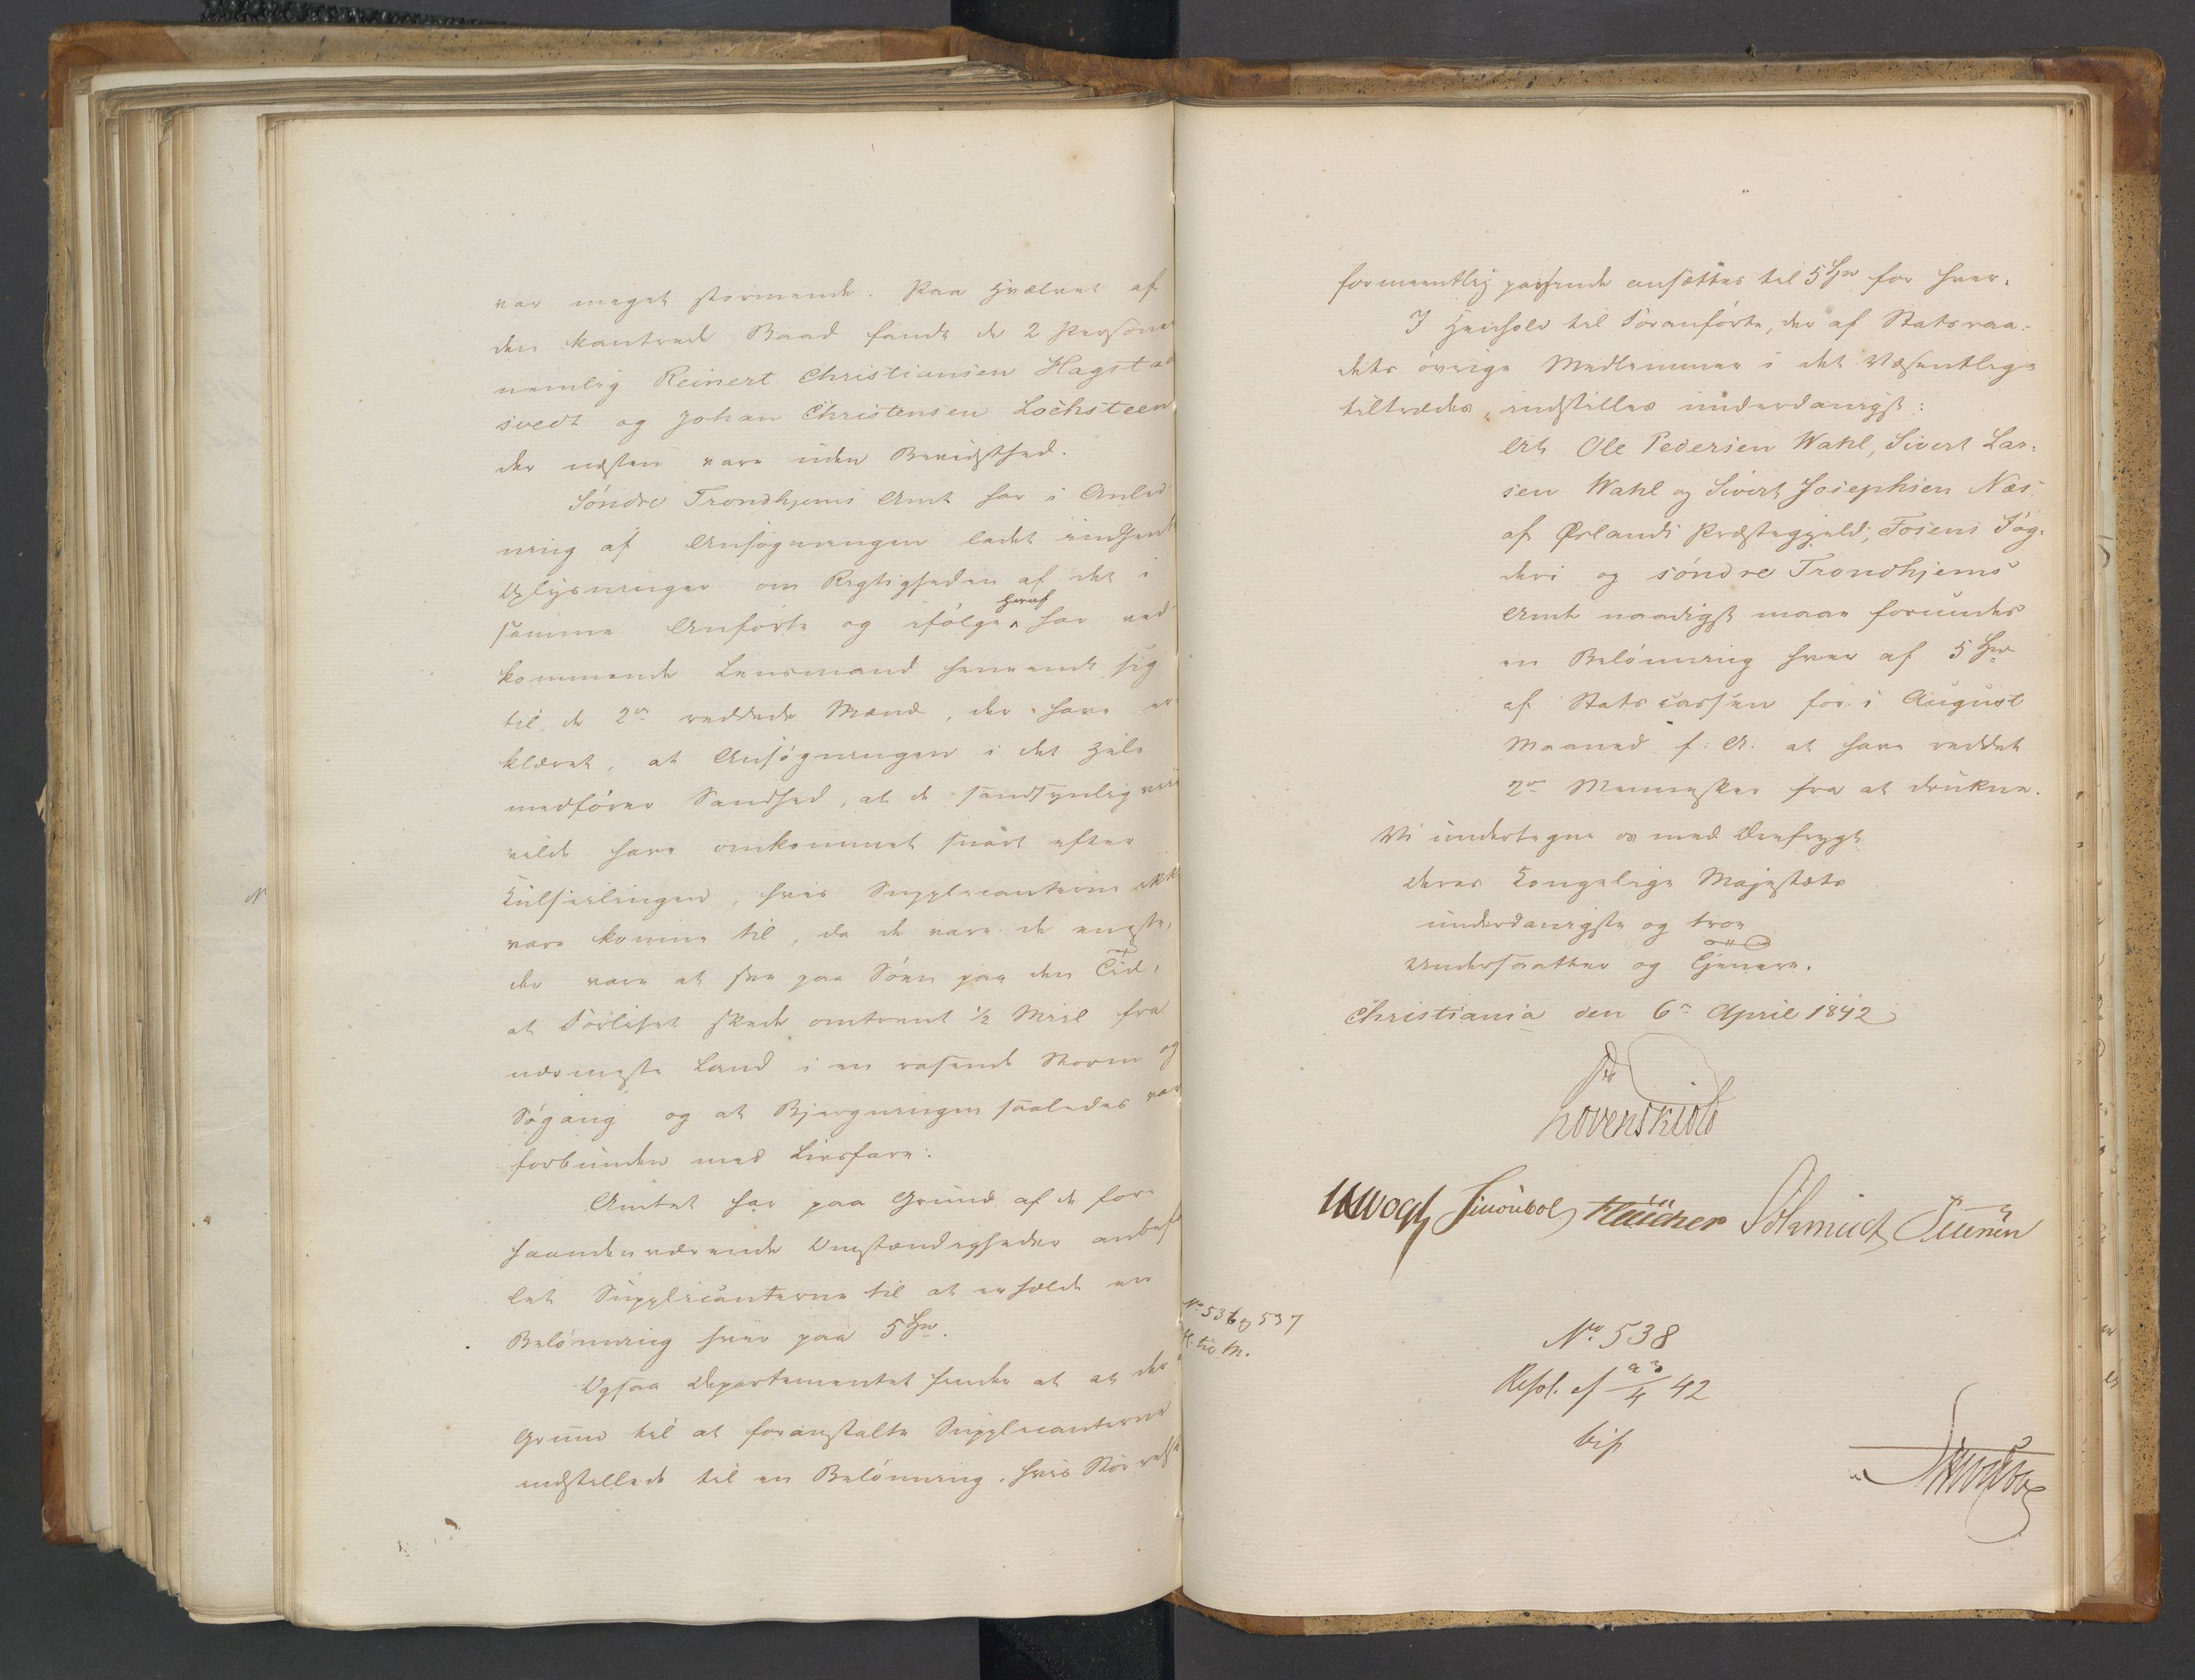 var meget stormende. Paa Hvælvet af
den kantrede Baad fandt de 2 Personer
nemlig Reinert Christiansen Hagstad
svedt og Johan Christensen Lochsteen
der næsten vare uden Bevidsthed.
Søndre Trondhjems Amt har i Anled
ning af Ansøgningen ladet indhente
Oplysninger om Rigtigheden af det i
samme Anførte og ifølge heraf har ved
kommende Lensmand henvendt sig
til de 2de reddede Mænd, der have er
klæret, at Ansøgningen i det Hele
medfører Sandhed, at de sandsynligviis
vilde have omkommet snart efter
Kulseilingen, hvis Supplicanterne ikke
vare komne til, da de vare de eneste,
der vare at see paa Søen paa den Tid,
at Forliset skede omtrent ½ Miil fra
nærmeste Land i en rasende Storm og
Søgang og at Bjergningen saaledes var
forbunden med Livsfare.
Amtet har paa Grund af de for
haandenværende Omstændigheder anbefa
let Supplicanterne til at erholde en
Belønning hver paa 5 Spd.
Ogsaa Departementet finder at at der
Grund til at foranstalte Supplicanterne
indstillede til en Belønning, hvis Størrelse
formeentlig passende ansættes til 5 Spd for hver.
I Henhold til Foranførte, der af Statsraa-
dets øvrige Medlemmer i det Væsentlige
tiltrædes, indstilles underdanigst:
At Ole Pedersen Wahl, Sivert Lar-
sen Wahl og Sivert Josephsen Næs
af Ørlands Præstegjeld, Fosens Fog-
deri og søndre Trondhjems
Amt naadigst maae forundes
en Belønning hver af 5 Spd
af Statscassen for i August
Maaned f: A: at have reddet
2de Mennesker fra at drukne.
Vi undertegne os med Ærefrygt
Deres Kongelige Majestæts
underdanigste og troe
Undersaatter og Tjenere.
Christiania den 6te April 1842
Løvenskiold
Vogt Sibbern Fleischer Schmidt
No 536 og 537
K. til M.
No 538
Resol. af 23/4 42
bif.